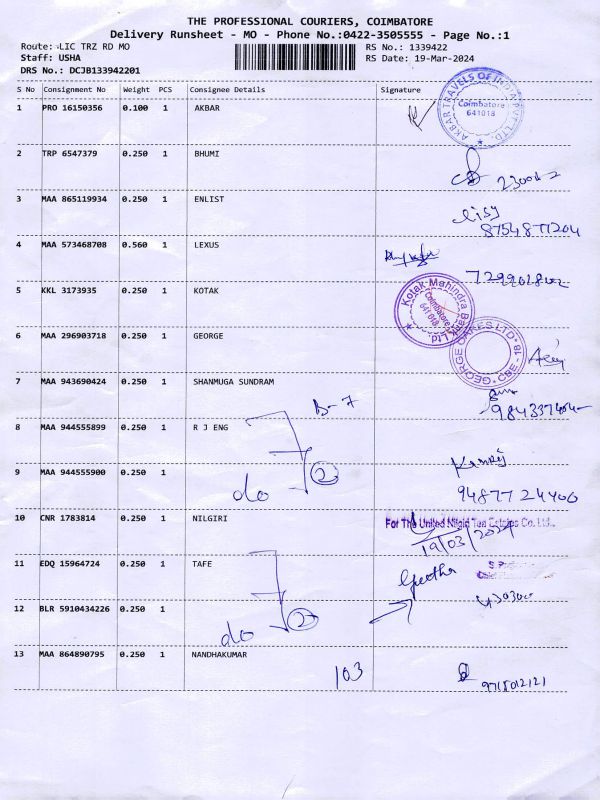 THE PROFESSIONAL COURIERS, COIMBATORE
Delivery Runsheet - MO - Phone No.:0422-3505555 - Page No.:1
Route: LIC TRZ RD MO RS No.: 1339422
Staff: USHA RS Date: 19-Mar-2024
DRS No.: DCJB133942201
S No Consignment No Weight PCS Consignee Details Signature
1 PRO 16150356 0.100 1 AKBAR
AKBAR TRAVELS OF INDIA PVT. LTD.
Coimbatore
641018
2 TRP 6547379 0.250 1 BHUMI
3 MAA 865119934 0.250 1 ENLIST
8754877204
4 MAA 573468708 0.560 1 LEXUS
5 KKL 3173935 0.250 1 KOTAK
Kotak Mahindra Bank Ltd
Coimbatore
641 018
6 MAA 296903718 0.250 1 GEORGE
GEORGE OAKES LTD
CBE - 18
7 MAA 943690424 0.250 1 SHANMUGA SUNDRAM
B-7
8 MAA 944555899 0.250 1 R J ENG
9 MAA 944555900 0.250 1
do 2
9487724400
10 CNR 1783814 0.250 1 NILGIRI
For The United Nilgiri Tea Estates Co. Ltd.,
19/03/2024
11 EDQ 15964724 0.250 1 TAFE
Geetha
12 BLR 5910434226 0.250 1
do 2
13 MAA 864890795 0.250 1 NANDHAKUMAR
103
9715012121